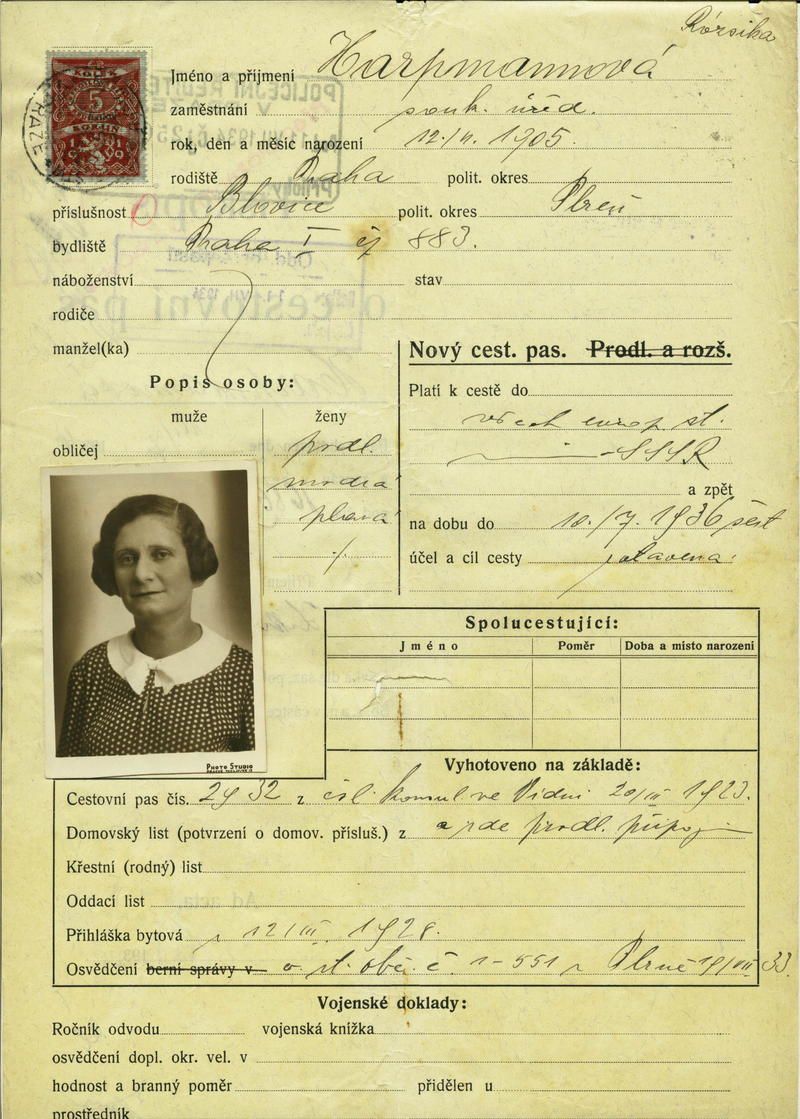 Rózsika
Jméno a příjmení Harpmannová
zaměstnání souk. úřed.
rok, den a měsíc narození 1905
rodiště Praha polit. okres
příslušnost Blovice polit. okres Plzeň
bydliště Praha I čj 883.
náboženství stav
rodiče
manžel(ka)
Nový cest. pas. Prodl. a rozš.
Popis osoby:
Platí k cestě do
muže ženy
všech evrop. st.
obličej prodl.
SSSR
modrá
a zpět
plavá
na dobu do 10./7. 1936
účel a cíl cesty
Spolucestující:
Jméno Poměr Doba a místo narození
PHOTO STUDIO
Vyhotoveno na základě:
Cestovní pas čís. 2932 z čsl. konsul ve Vídni 20/III 1923.
Domovský list (potvrzení o domov. přísluš.) z prodl.
Křestní (rodný) list
Oddací list
Přihláška bytová 12/III. 1928.
Osvědčení berní správy v o st. obč. č. 1-551 Plzně 33.
Vojenské doklady:
Ročník odvodu vojenská knížka
osvědčení dopl. okr. vel. v
hodnost a branný poměr přidělen u
prostředník